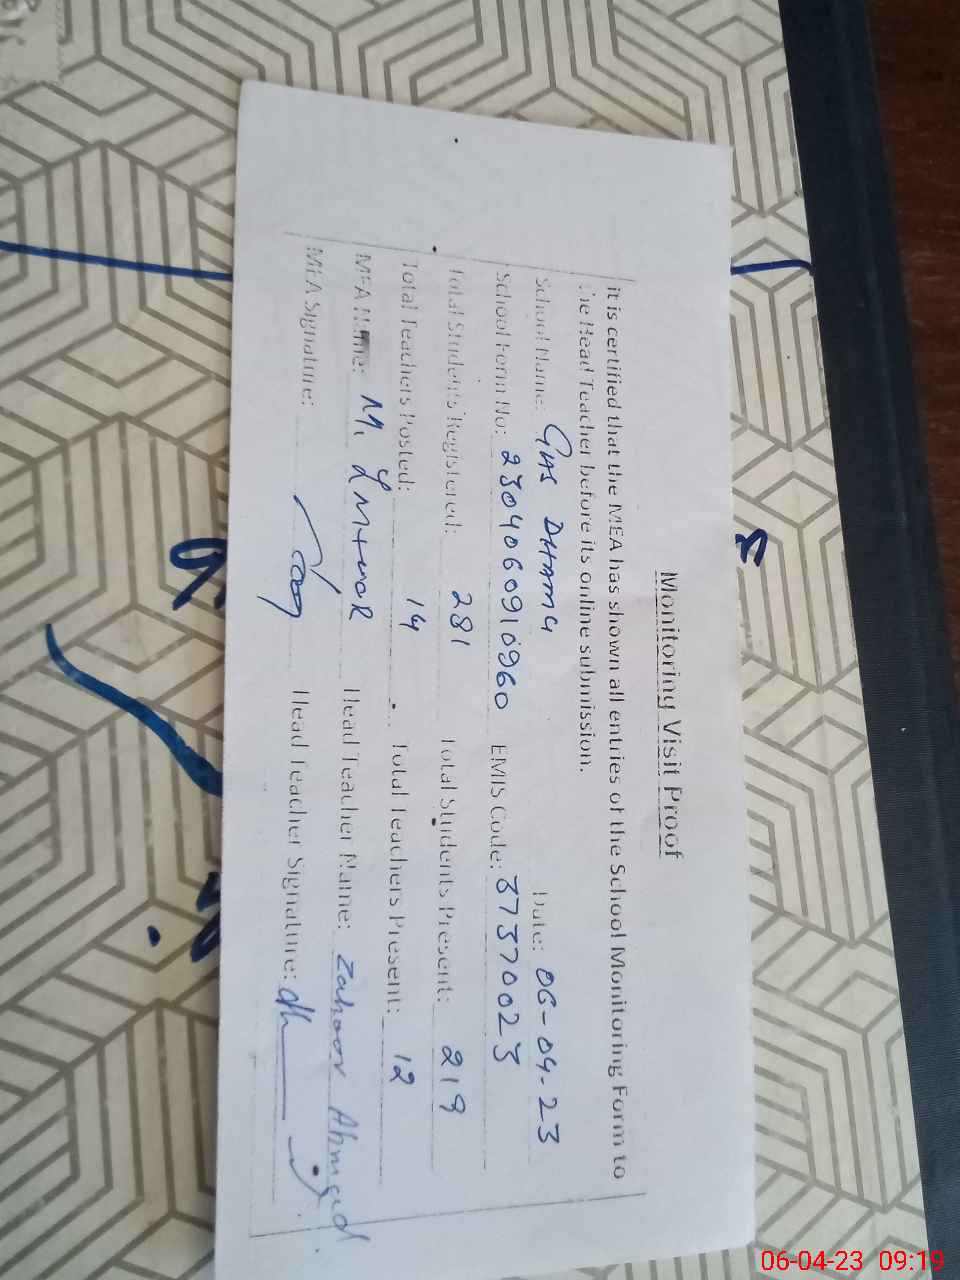 Monitoring Visit Proof
it is certified that the MEA has shown all entries of the School Monitoring Form to
the Head Teacher before its online submission.
School Name: GHS DHAMA Date: 06-04-23
School Form No: 2304060910960 EMIS Code: 37370023
Total Students Registered: 281 Total Students Present: 219
Total Teachers Posted: 14 Total Teachers Present: 12
MEA Name: M. Head Teacher Name: Zahoor Ahmed
MEA Signature: Head Teacher Signature:
06-04-23 09:19